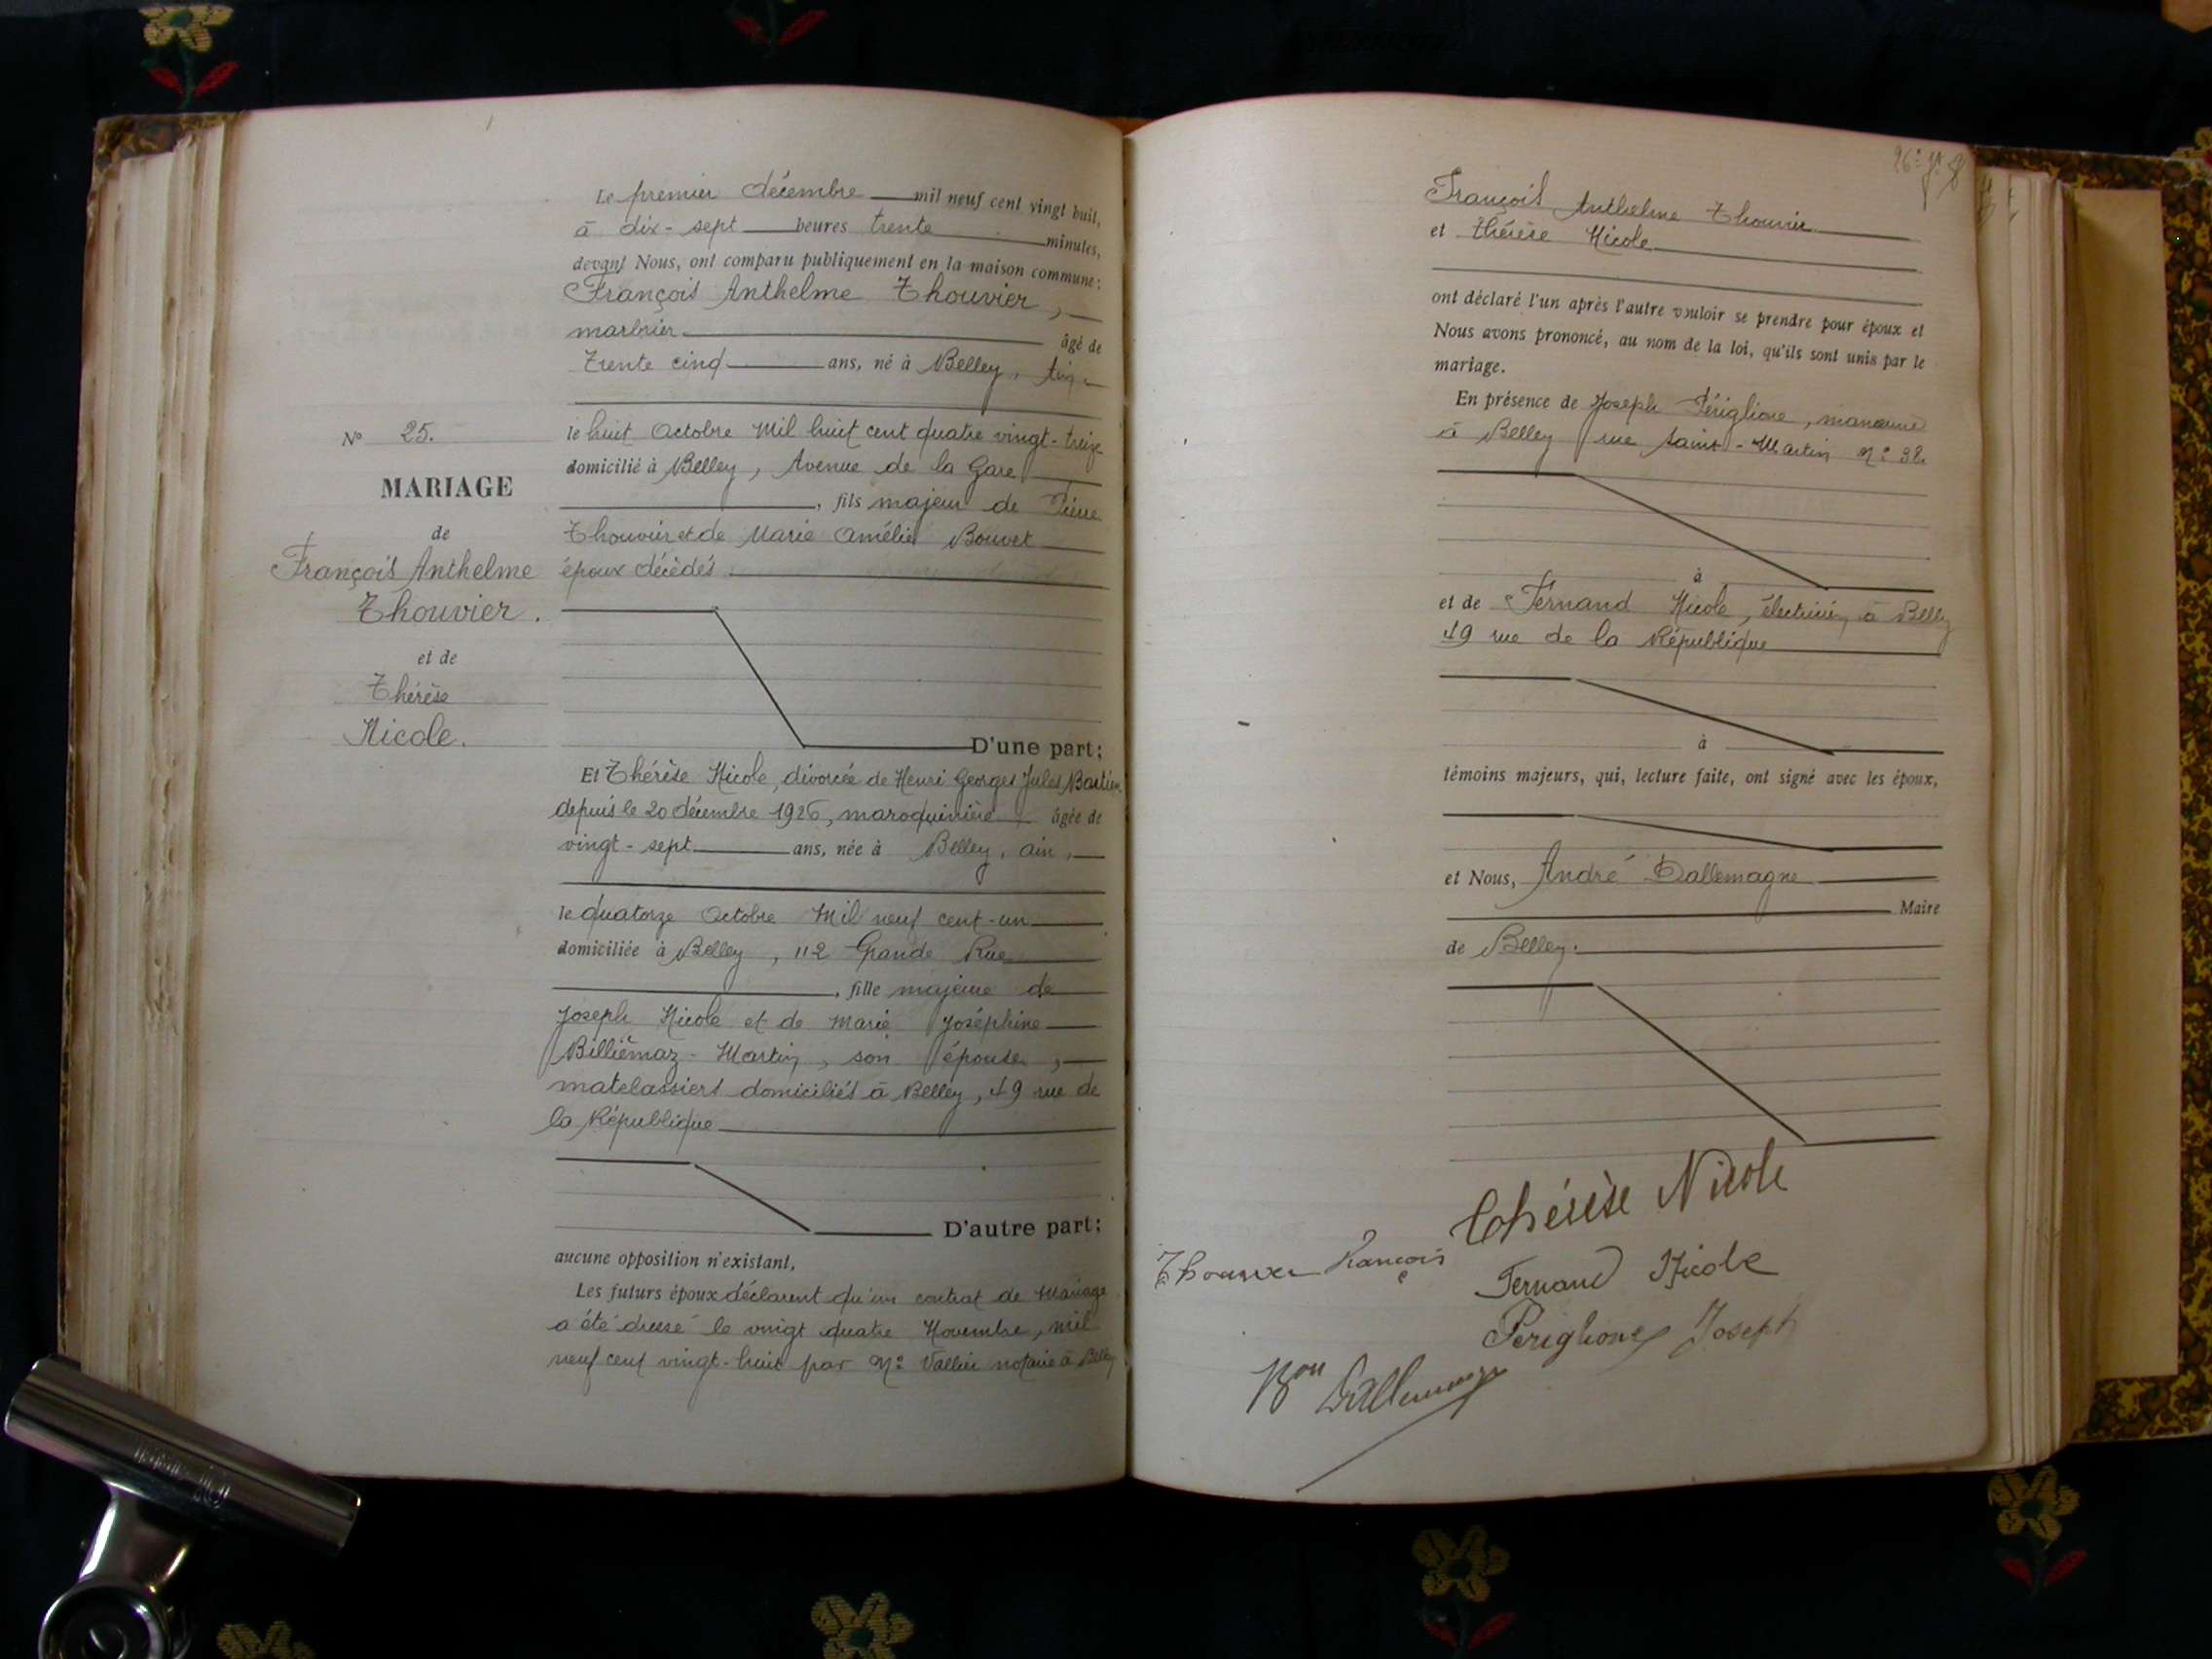 Le premier décembre mil neuf cent vingt huit,
à dix-sept heures trente minutes,
devant Nous, ont comparu publiquement en la maison commune:
François Anthelme Thouvier,
marbrier âgé de
Trente cinq ans, né à Belley, Ain
le huit Octobre Mil huit cent quatre vingt-treize
domicilié à Belley, Avenue de la Gare
, fils majeur de Pierre
Thouvier et de Marie Amélie Bouvet
époux décédés
D'une part;
Et Thérèse Nicole, divorcée de Henri Georges Jules
depuis le 20 décembre 1926, maroquinière âgée de
vingt-sept ans, née à Belley, ain,
le quatorze Octobre Mil neuf cent-un
domiciliée à Belley, 112 Grande Rue
, fille majeure de
Joseph Nicole et de Marie Joséphine
Billiémaz-Martin, son épouse,
matelassiers domiciliés à Belley, 49 rue de
la République
D'autre part;
aucune opposition n'existant,
Les futurs époux déclarent qu'un contrat de Mariage
a été dressé le vingt quatre Novembre, mil
neuf cent vingt-huit par Me Vallier notaire à Belley
No 25.
MARIAGE
de
François Anthelme
Thouvier.
et de
Thérèse
Nicole.
François Anthelme Thouvier
et Thérèse Nicole
ont déclaré l'un après l'autre vouloir se prendre pour époux et
Nous avons prononcé, au nom de la loi, qu'ils sont unis par le
mariage.
En présence de Joseph Périglione, manœuvre
à Belley rue Saint-Martin No 32.
à
et de Fernand Nicole, électricien, à Belley
49 rue de la République
à
témoins majeurs, qui, lecture faite, ont signé avec les époux,
et Nous, André Dallemagne
Maire
de Belley.
Thérèse Nicole
Thouvier François
Fernand Nicole
Periglione Joseph
Bon Dallemagne